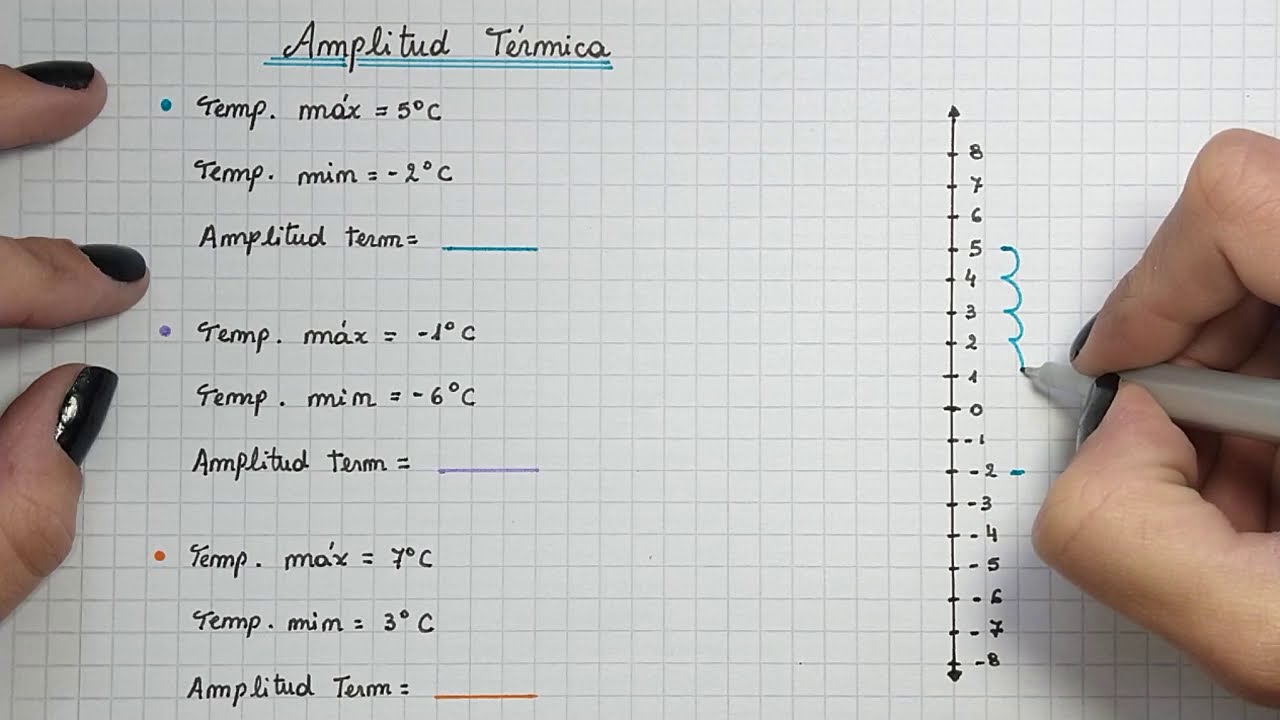 Amplitud Térmica
Temp. máx = 5°C
Temp. min = -2°C
Amplitud term=
Temp. máx = -1°C
Temp. min = -6°C
Amplitud term =
Temp. máx = 7°C
Temp. min = 3°C
Amplitud Term =
8
7
6
5
4
3
2
1
0
-1
-2
-3
-4
-5
-6
-7
-8